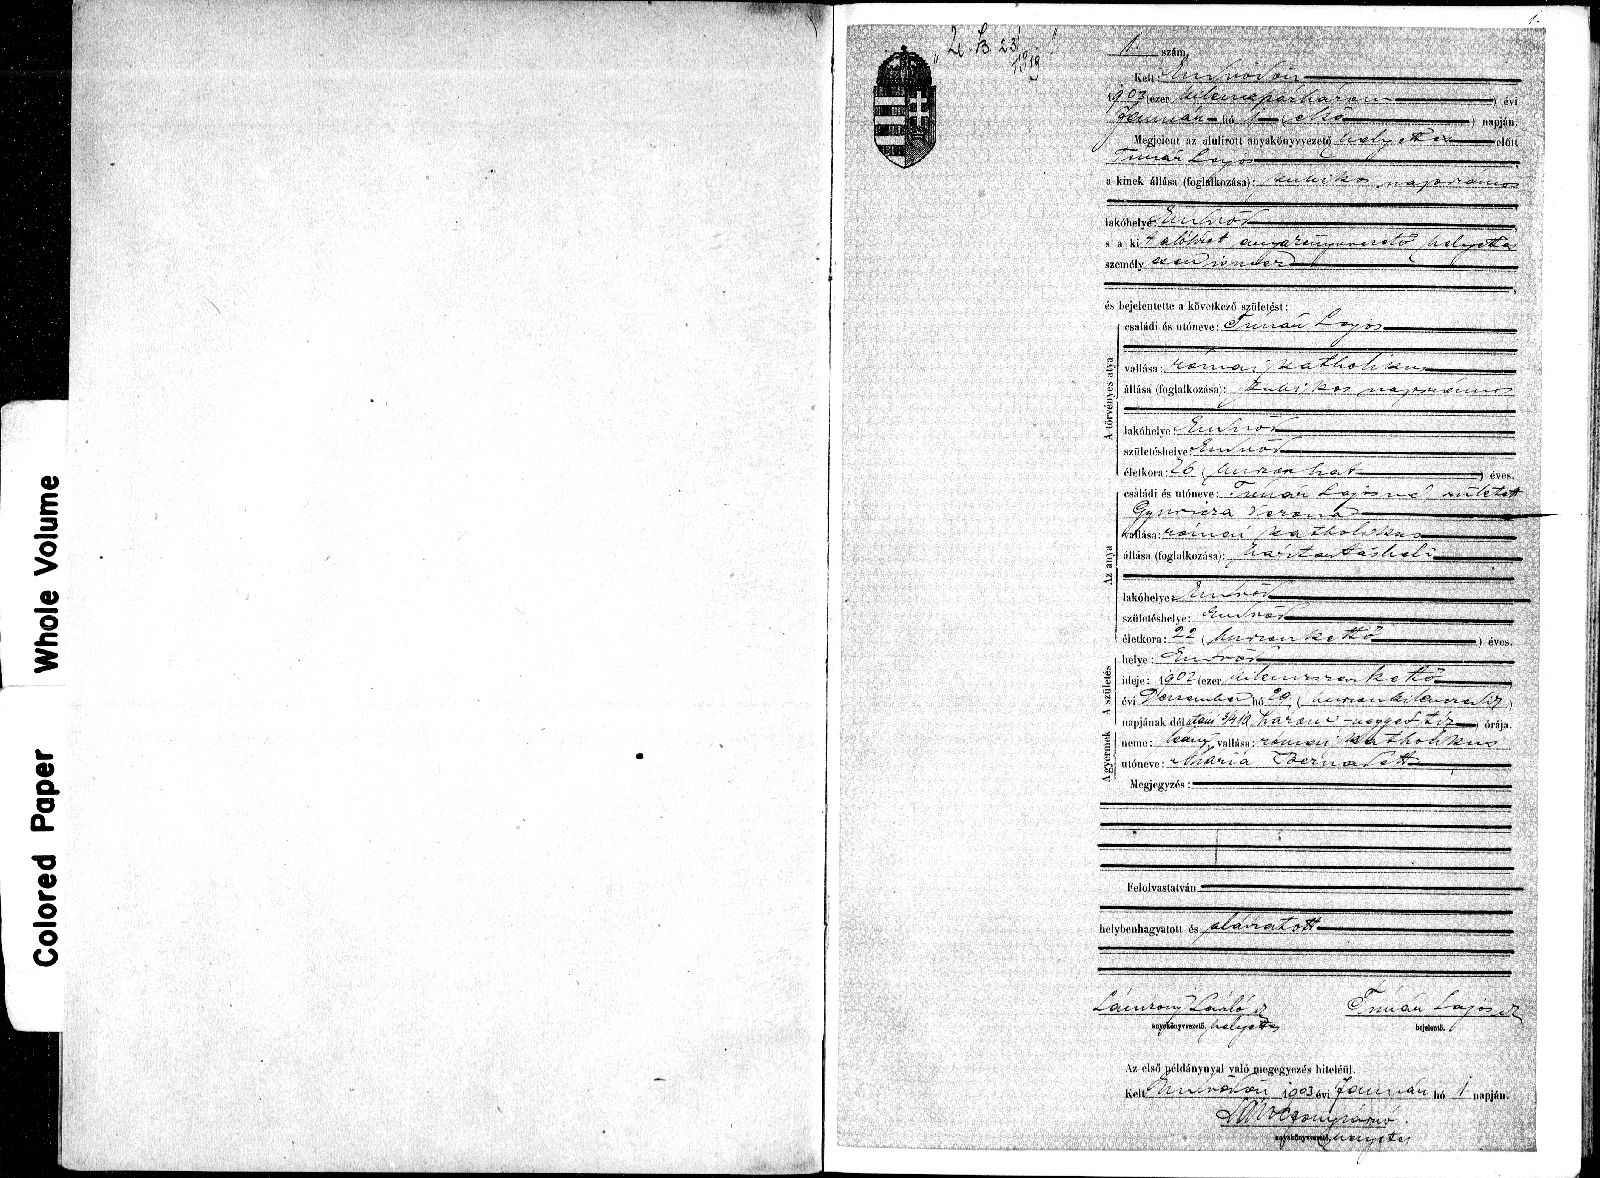 Whole Volume
Colored Paper
1.
1. szám.
Kelt: Endrődön
1903 (ezer kilencszázhárom) évi
Január hó 1 (első) napján.
Megjelent az alulirott anyakönyvvezető helyettes előtt
Tímár Lajos
a kinek állása (foglalkozása): kubikos napszámos
lakóhelye Endrőd
s a kit alólirt anyakönyvvezető helyettes
személyesen ismer
és bejelentette a következő születést:
A törvényes atya
családi és utóneve: Tímár Lajos
vallása: római katholikus
állása (foglalkozása): kubikos napszámos
lakóhelye: Endrőd
születéshelye: Endrőd
életkora: 26 (huszonhat) éves.
Az anya
családi és utóneve: Tímár Lajosné született
Gyuricza Verona
vallása: római katholikus
állása (foglalkozása): háztartásbeli
lakóhelye: Endrőd
születéshelye: Endrőd
életkora: 22 (huszonkettő) éves.
A születés
helye: Endrőd
ideje: 1902 (ezer kilencszázkettő)
évi December hó 29 (huszonkilencedik)
napjának délután 3/4 10 (három-negyed tíz) órája.
A gyermek
neme: leány, vallása: római katholikus
utóneve: Mária Bernadett
Megjegyzés:
Felolvastatván
helybenhagyatott és aláíratott
Tímár Lajos
anyakönyvvezető, helyettes
bejelentő.
Az első példánynyal való megegyezés hiteléül.
Kelt Endrődön 1903 évi Január hó 1 napján.
anyakönyvvezető, helyettes